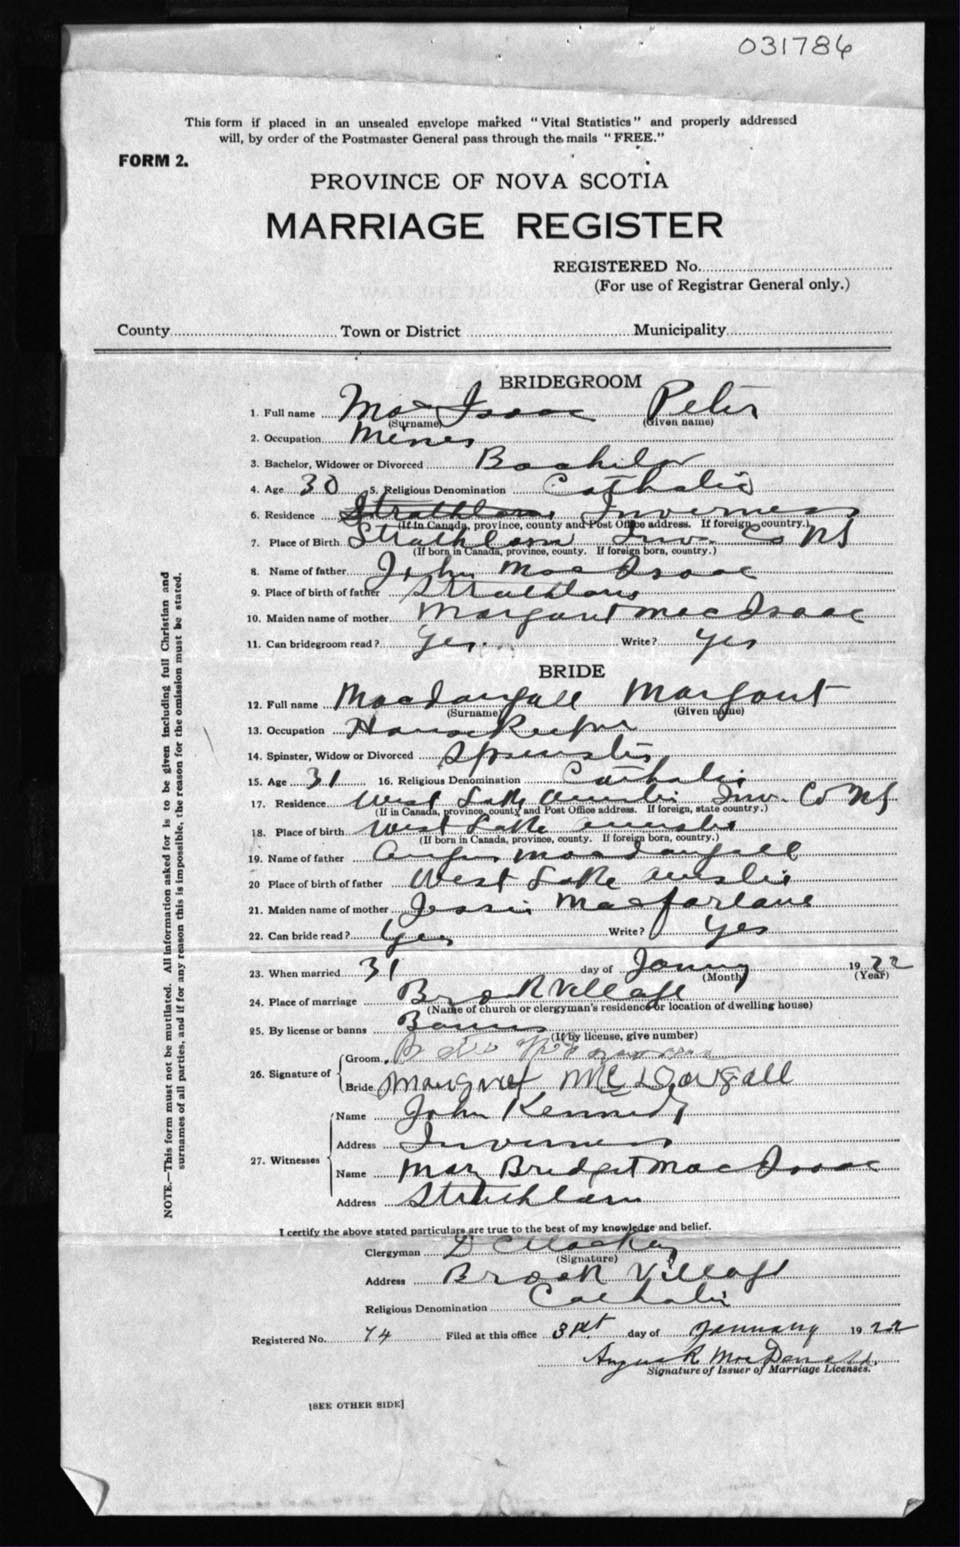 031786
This form if placed in an unsealed envelope marked "Vital Statistics" and properly addressed
will, by order of the Postmaster General pass through the mails "FREE."
FORM 2.
PROVINCE OF NOVA SCOTIA
MARRIAGE REGISTER
REGISTERED No.
(For use of Registrar General only.)
County Town or District Municipality
BRIDEGROOM
1. Full name MacIsaac Peter
(Surname) (Given name)
2. Occupation Miner
3. Bachelor, Widower or Divorced Bachelor
4. Age 30 5. Religious Denomination Catholic
6. Residence Strathlorne Inverness
(If in Canada, province, county and Post Office address. If foreign, country.)
7. Place of Birth Strathlorne Inv. Co NS
(If born in Canada, province, county. If foreign born, country.)
8. Name of father John MacIsaac
9. Place of birth of father Strathlorne
10. Maiden name of mother Margaret MacIsaac
11. Can bridegroom read? Yes Write? Yes
BRIDE
12. Full name MacDougall Margaret
(Surname) (Given name)
13. Occupation Housekeeper
14. Spinster, Widow or Divorced Spinster
15. Age 31 16. Religious Denomination Catholic
17. Residence West Lake Ainslie Inv. Co NS
(If in Canada, province, county and Post Office address. If foreign, state country.)
18. Place of birth West Lake Ainslie
(If born in Canada, province, county. If foreign born, country.)
19. Name of father Angus MacDougall
20 Place of birth of father West Lake Ainslie
21. Maiden name of mother Jessie MacFarlane
22. Can bride read? Yes Write? Yes
23. When married 31 day of January 1922
(Month) (Year)
24. Place of marriage Brook Village
(Name of church or clergyman's residence or location of dwelling house)
25. By license or banns Banns
(If by license, give number)
26. Signature of Groom
Bride Margret McDougall
27. Witnesses Name John Kennedy
Address Inverness
Name Mary Bridget MacIsaac
Address Strathlorne
I certify the above stated particulars are true to the best of my knowledge and belief.
Clergyman
(Signature)
Address Brook Village
Religious Denomination Catholic
Registered No. 74 Filed at this office 31st day of January 1922
Angus R MacDonald
Signature of Issuer of Marriage Licenses.
[SEE OTHER SIDE]
NOTE.—This form must not be mutilated. All information asked for is to be given including full Christian and
surnames of all parties, and if for any reason this is impossible, the reason for the omission must be stated.